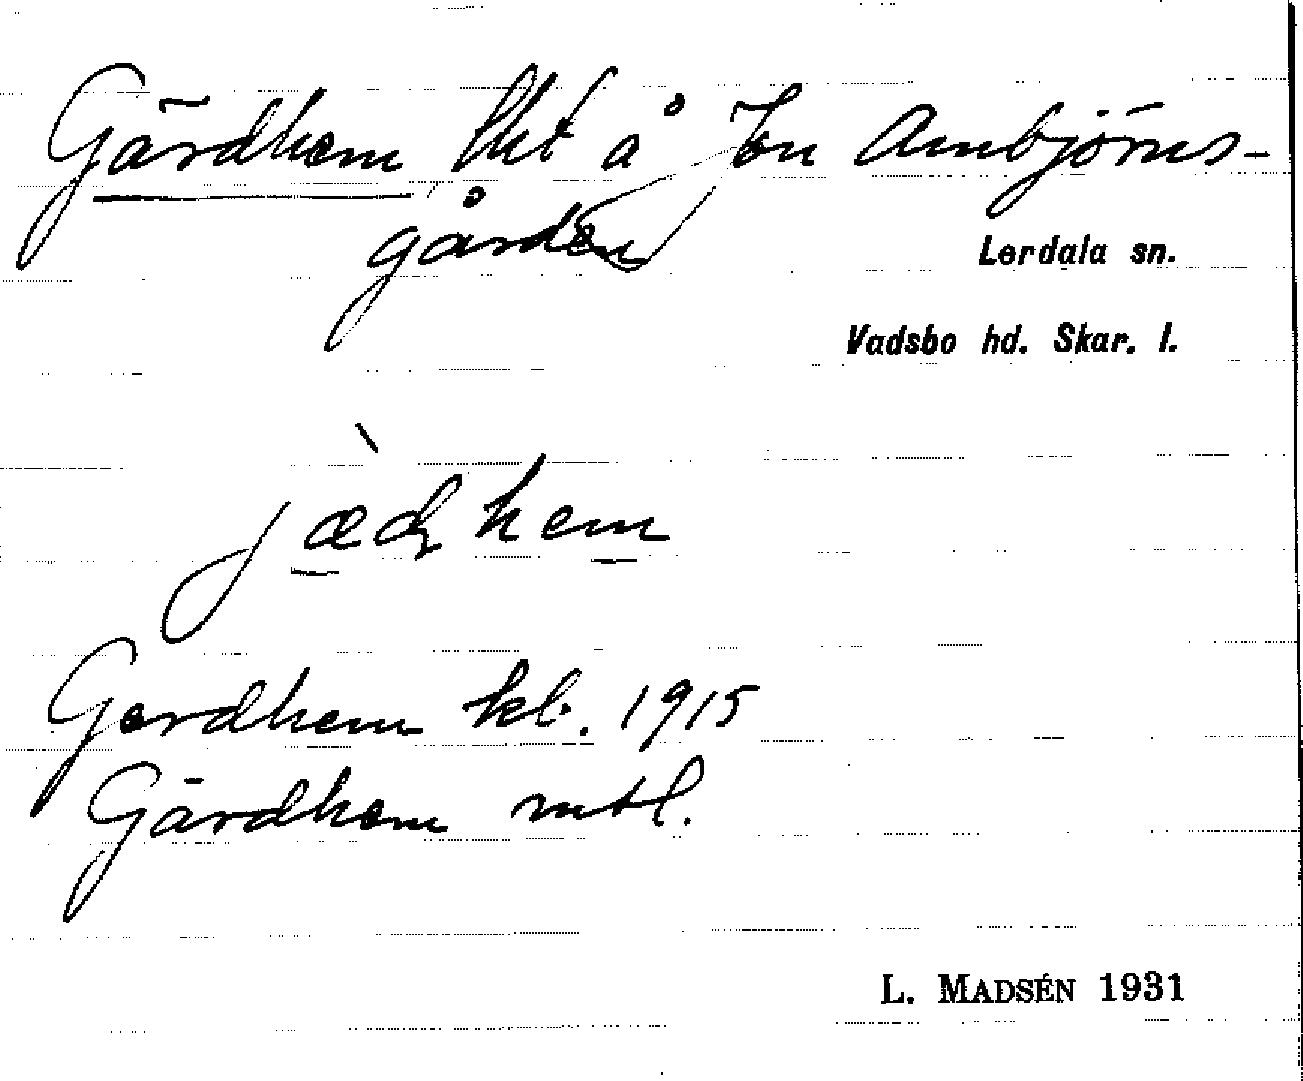 Gärdhem lht å Jon Ambjörns-
gården
Lerdala sn.
Vadsbo hd. Skar. l.
jædhem
Gerdhem kb. 1915
Gärdhem mtl.
L. MADSÉN 1931